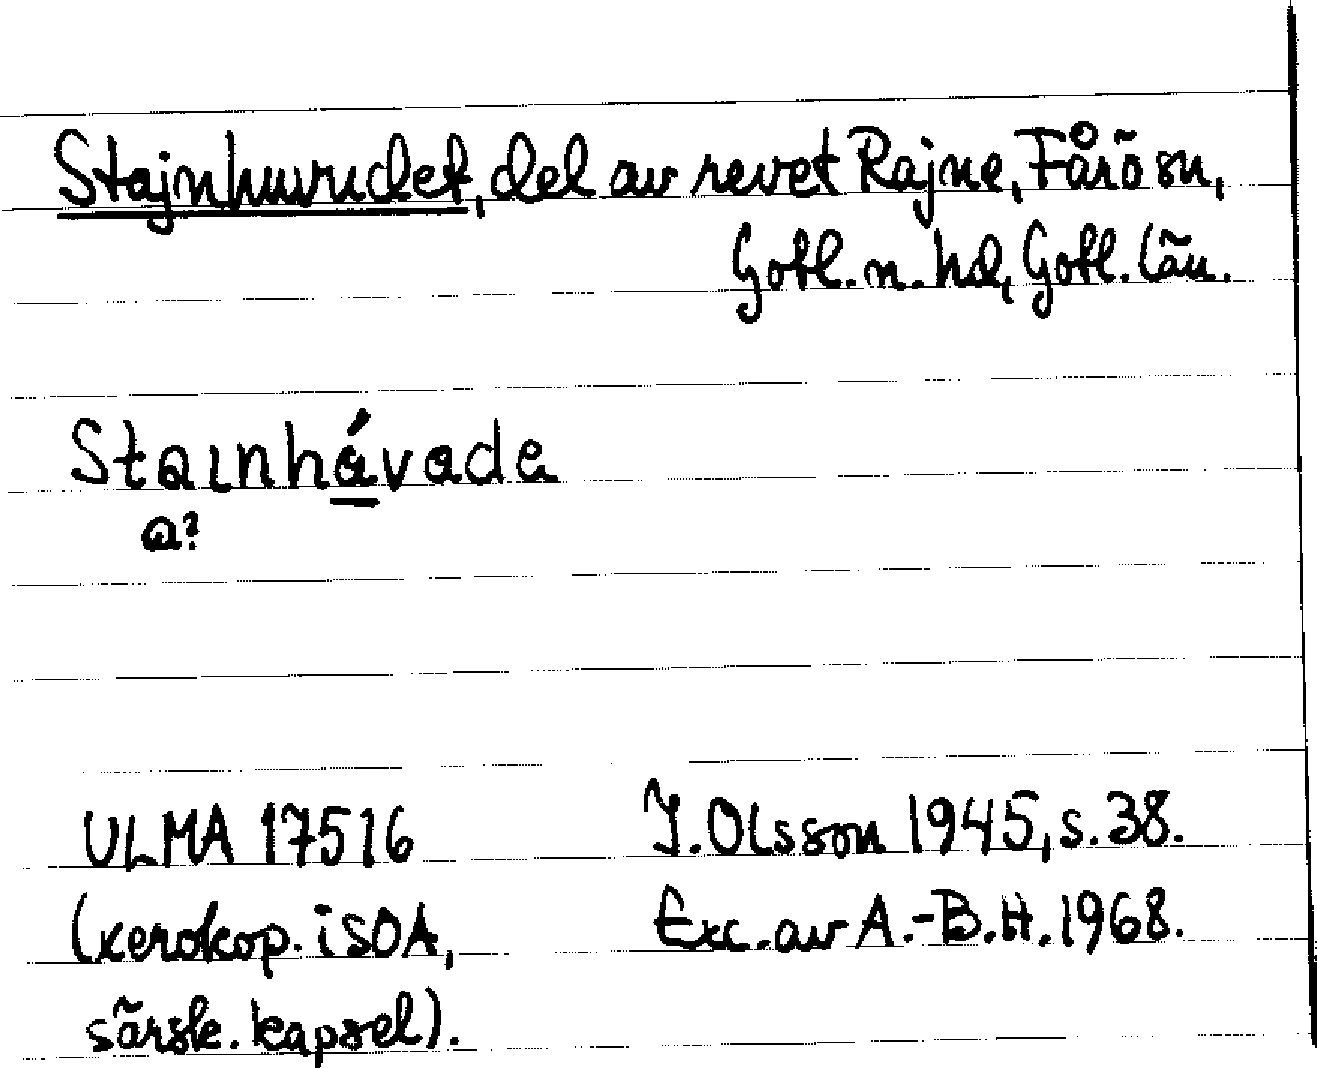 Stajnhuvudet, del av revet Rajne, Fårö sn,
Gotl. n. hd, Gotl. län.
Staınhávade
a?
ULMA 17516 J. Olsson 1945, s. 38.
(xerokop. i SOA, Exc. av A.-B.H. 1968.
särsk. kapsel).